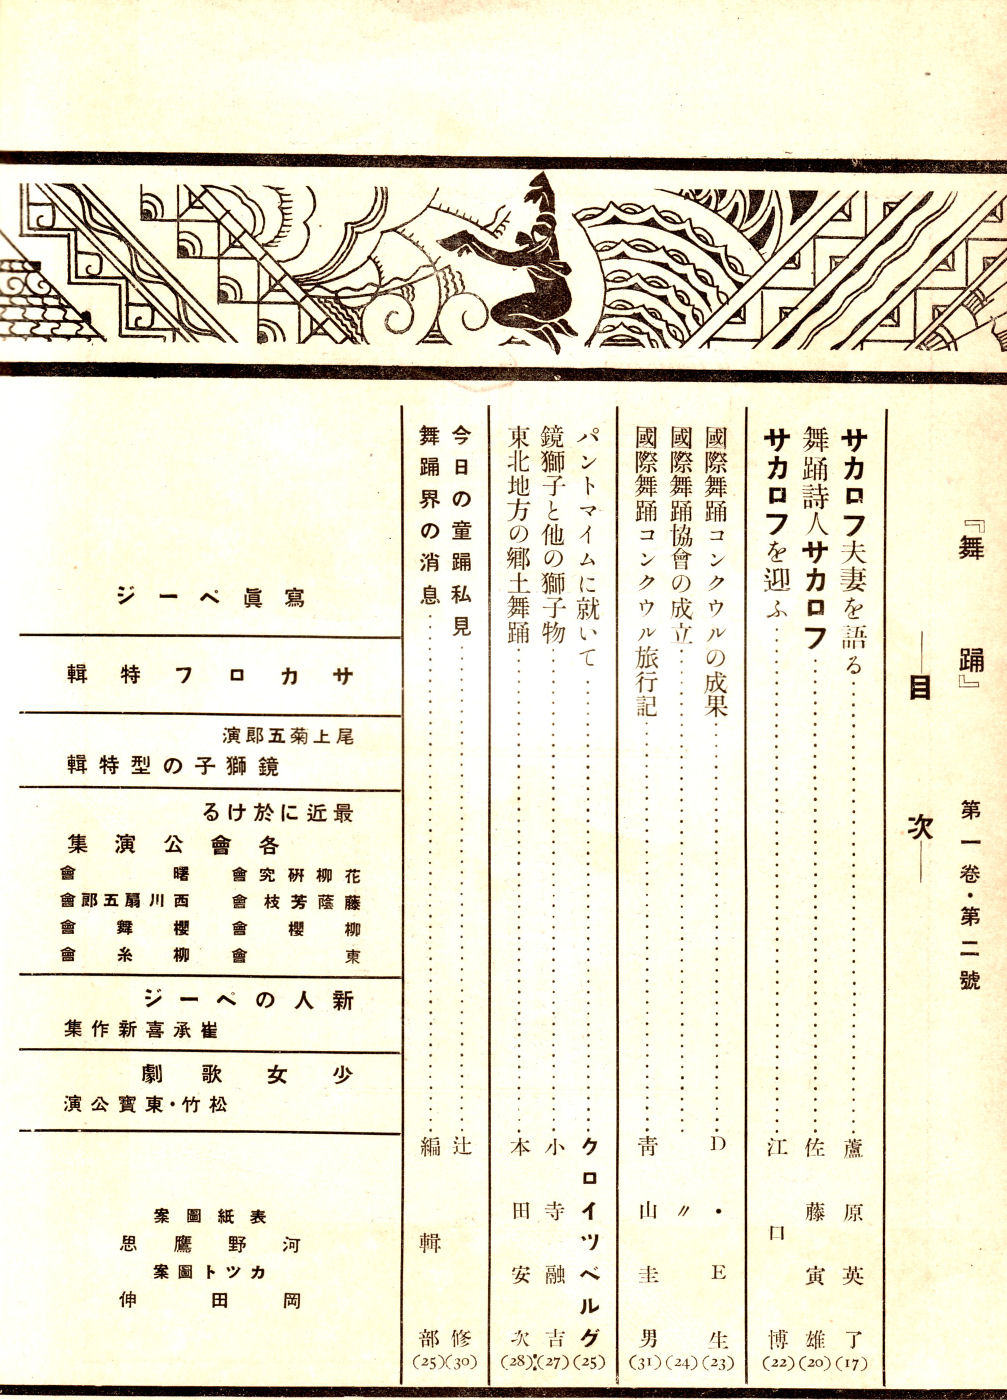 『舞踊』 第一卷・第二號
―目次―
サカロフ夫妻を語る……蘆原英了(17)
舞踊詩人サカロフ……佐藤寅雄(20)
サカロフを迎ふ……江口博(22)
國際舞踊コンクウルの成果……D・E生(23)
國際舞踊協會の成立……〃(24)
國際舞踊コンクウル旅行記……靑山圭男(31)
パントマイムに就いて……クロイツベルグ(25)
鏡獅子と他の獅子物……小寺融吉(27)
東北地方の鄕土舞踊……本田安次(28)
今日の童踊私見……辻修(30)
舞踊界の消息……編輯部(25)
寫眞ページ
サカロフ特輯
尾上菊五郎演
鏡獅子の型特輯
最近に於ける
各會公演集
花柳硏究會 曙會
藤蔭芳枝會 西川扇五郎會
柳櫻會 櫻舞會
東會 柳糸會
新人のページ
崔承喜新作集
少女歌劇
松竹・東寶公演
表紙圖案
河野鷹思
カツト圖案
岡田伸